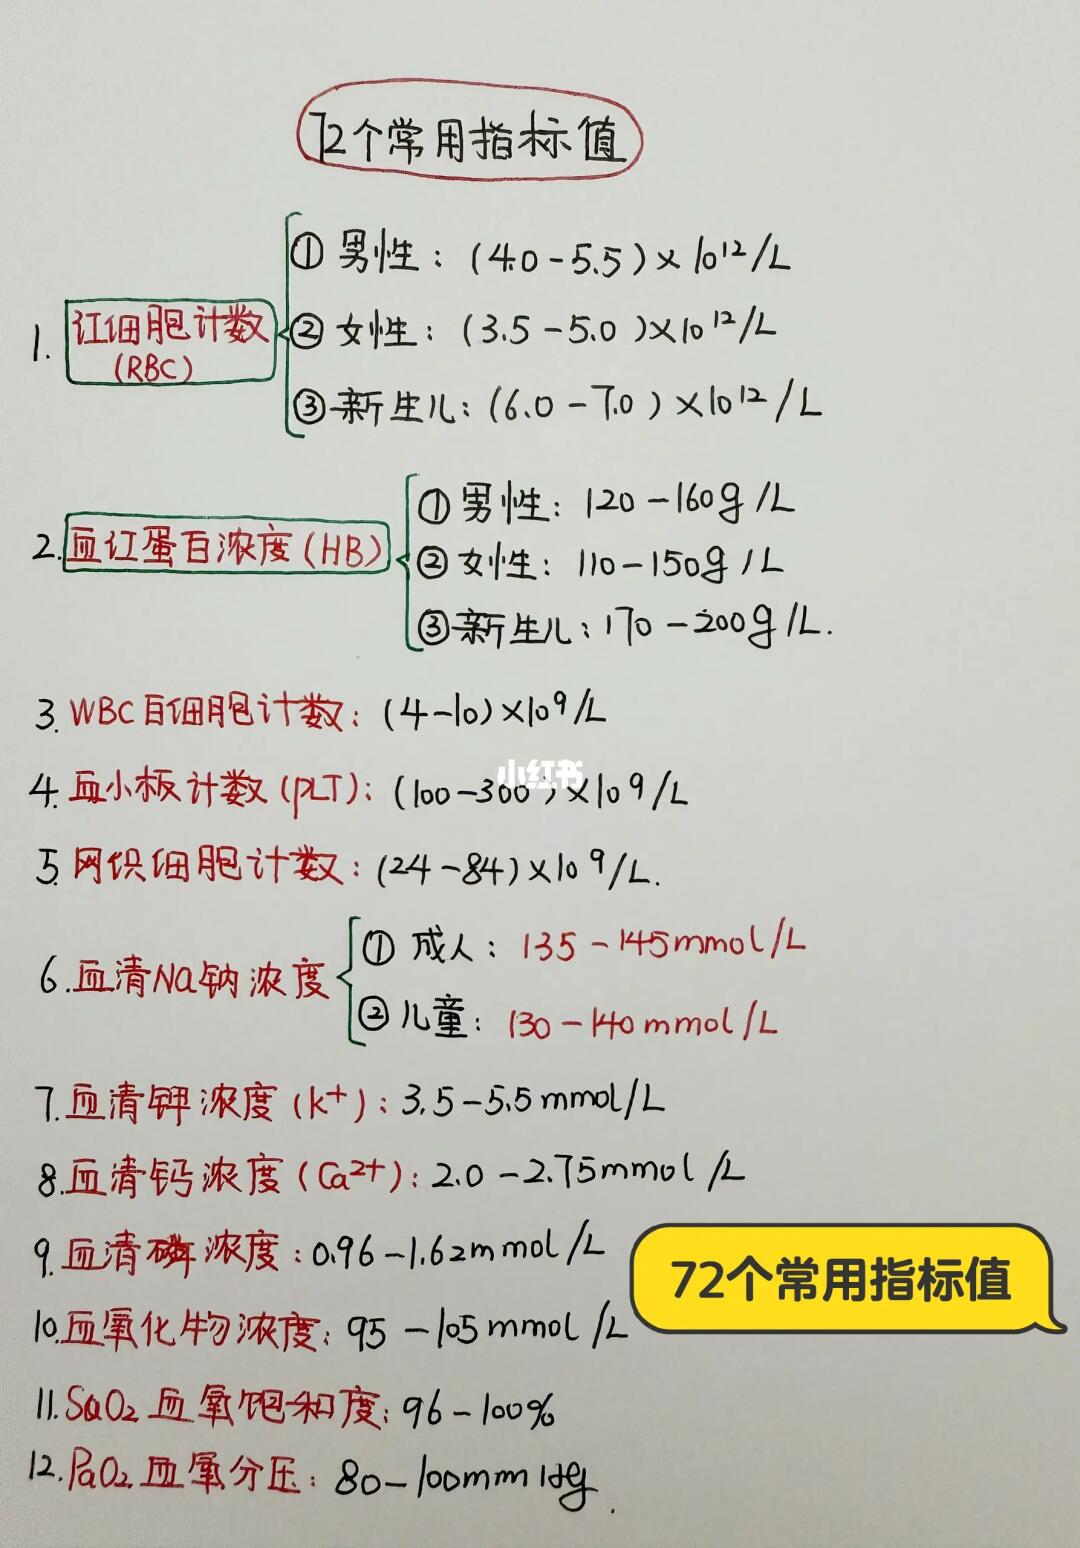 72个常用指标值
① 男性：(4.0-5.5)×10¹²/L
1. 红细胞计数 ② 女性：(3.5-5.0)×10¹²/L
(RBC)
③ 新生儿：(6.0-7.0)×10¹²/L
① 男性：120-160g/L
2. 血红蛋白浓度(HB) ② 女性：110-150g/L
③ 新生儿：170-200g/L.
3. WBC白细胞计数：(4-10)×10⁹/L
小红书
4. 血小板计数(PLT)：(100-300)×10⁹/L
5. 网织细胞计数：(24-84)×10⁹/L.
① 成人：135-145mmol/L
6. 血清Na钠浓度
② 儿童：130-140mmol/L
7. 血清钾浓度(K⁺)：3.5-5.5mmol/L
8. 血清钙浓度(Ca²⁺)：2.0-2.75mmol/L
9. 血清磷浓度：0.96-1.62mmol/L
72个常用指标值
10. 血氧化物浓度：95-105mmol/L
11. SaO₂血氧饱和度：96-100%
12. PaO₂血氧分压：80-100mmHg.